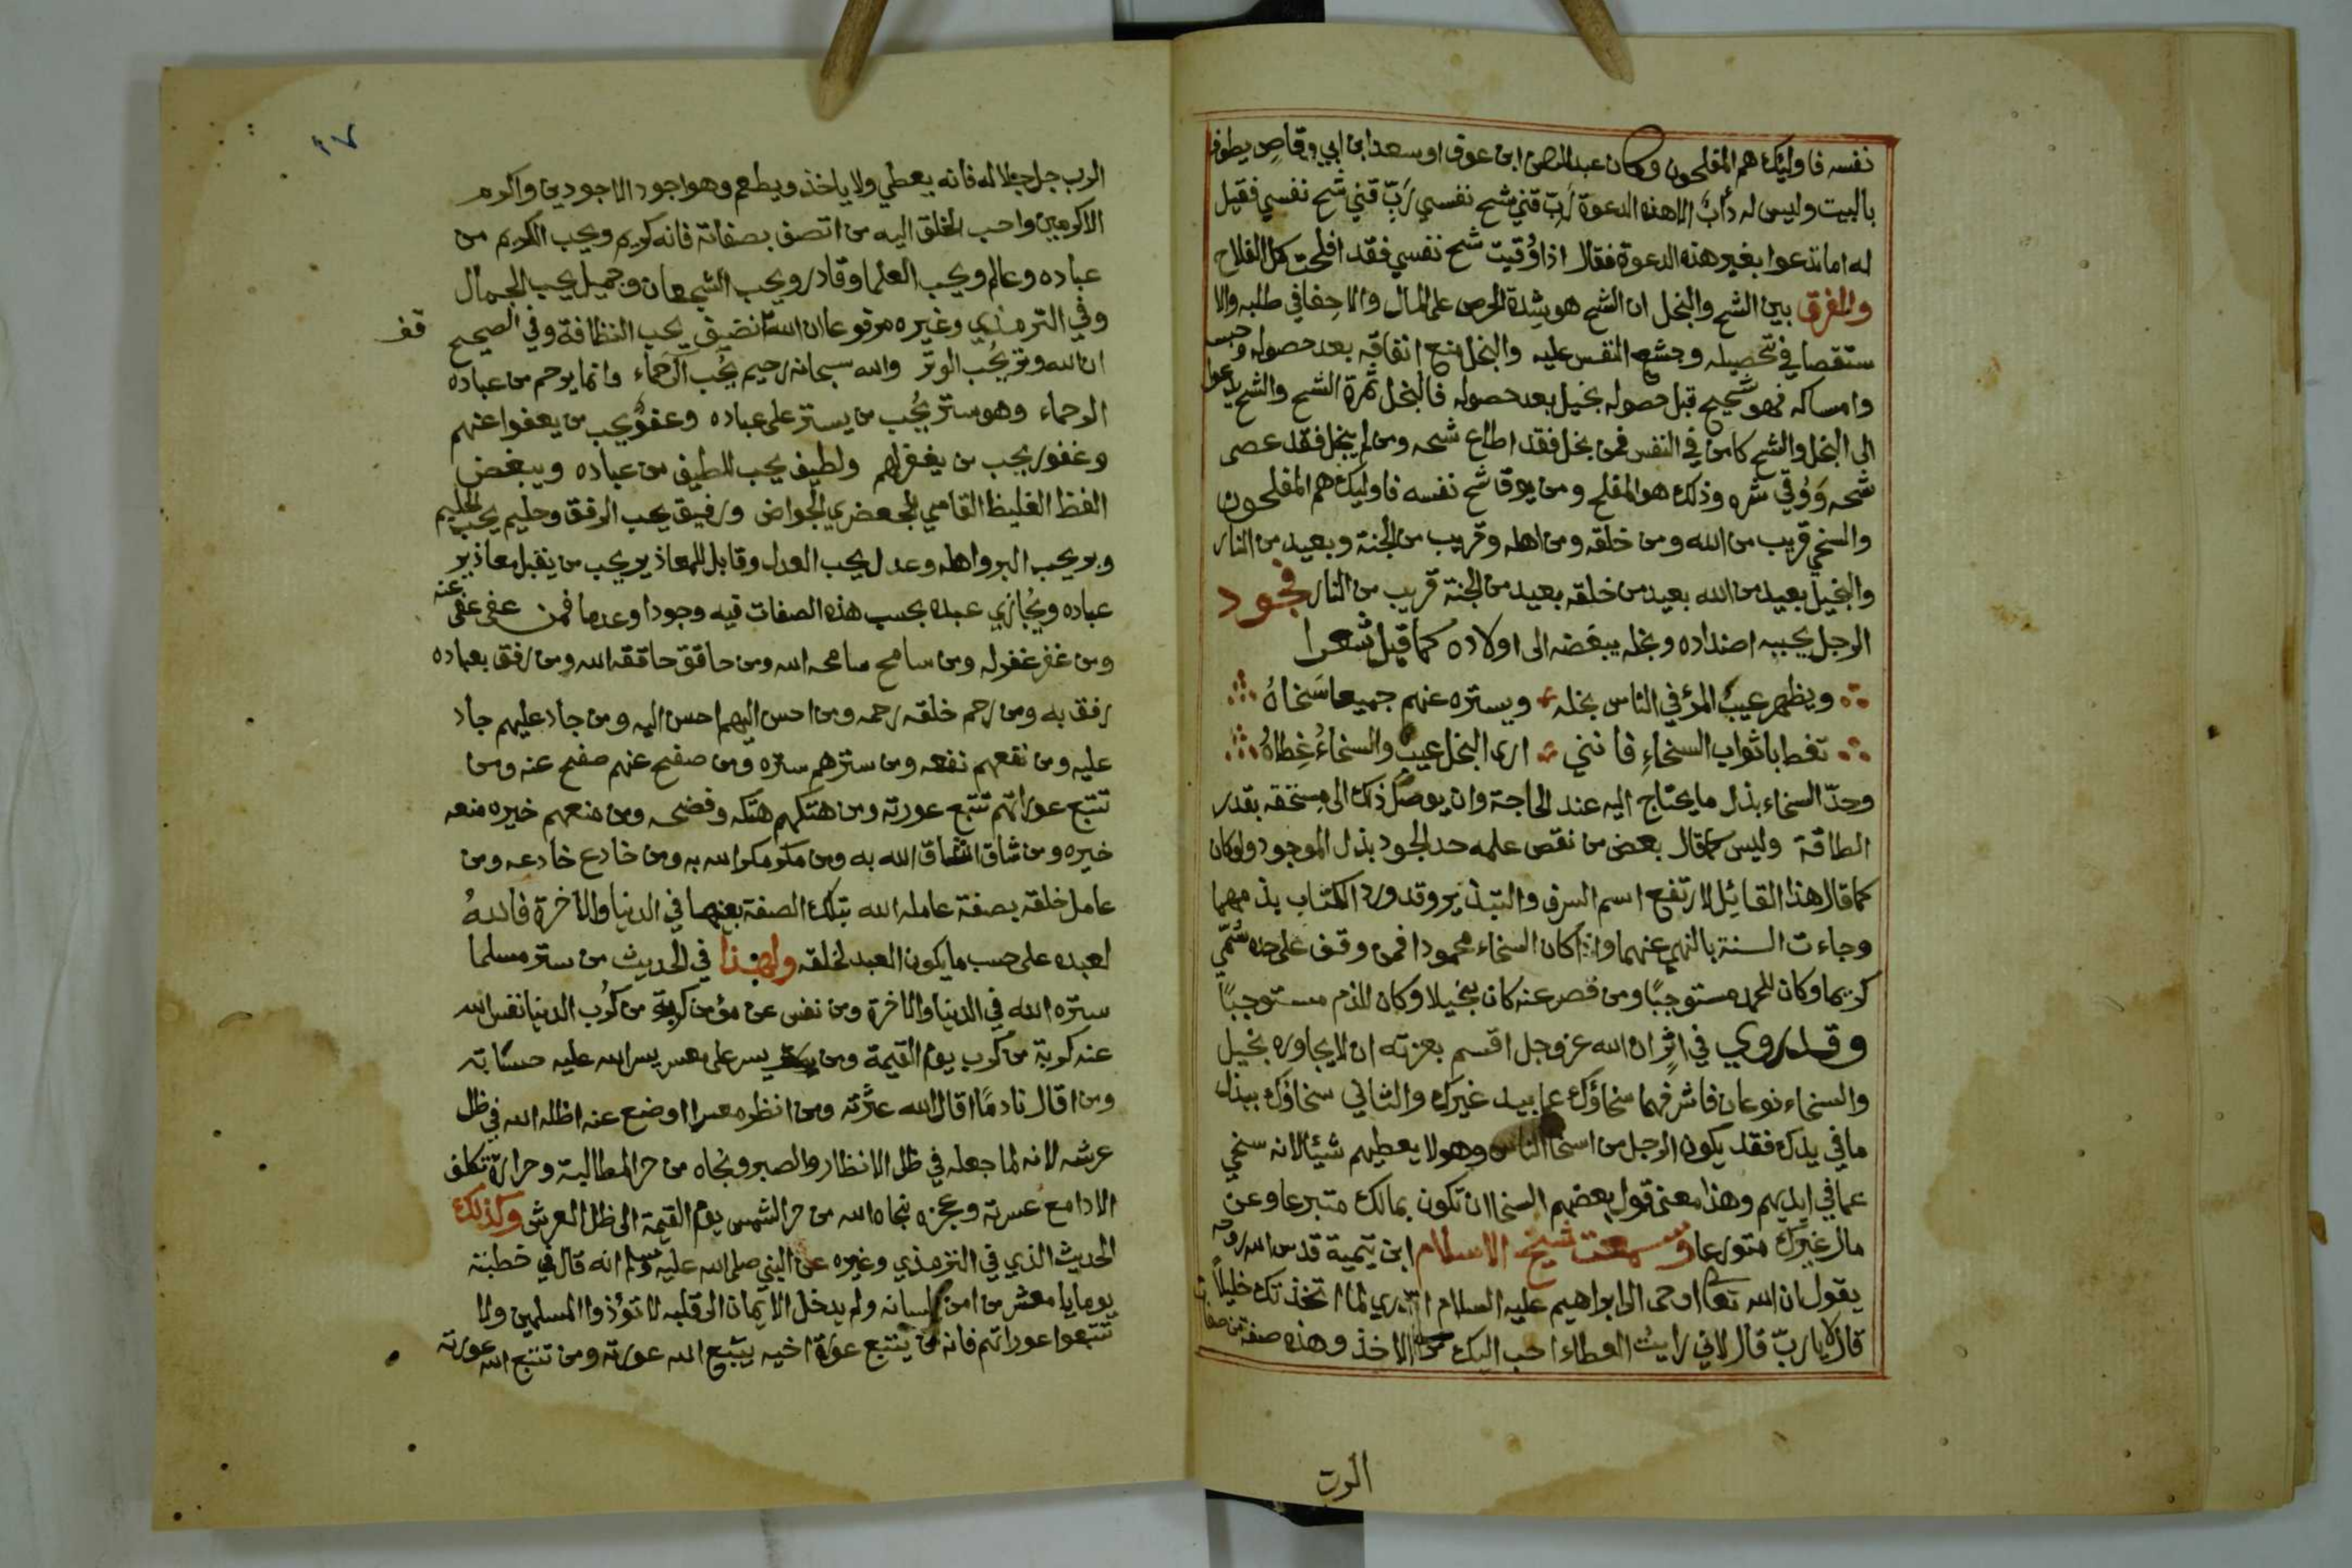 نفسه فاوليك هم المفلحون وكان عبد الرحمن ابن عوف او سعد ابن ابي وقاص يطوف
بالبيت وليس له دأبٌ الا هذه الدعوة رَبِّ قني شح نفسي رَبِّ قني شح نفسي فقيل
له اما تدعوا بغير هذه الدعوة فقال اذا وُقيت شح نفسي فقد افلحت كل الفلاح
والفرق بين الشح والبخل ان الشح هو شدة الحرص على المال والاحفا في طلبه والا
ستقصا في تحصيله وجشع النفس عليه والبخل منع انفاقه بعد حصوله وحبسه
وامساكه فهو شحيح قبل حصوله بخيل بعد حصوله فالبخل ثمرة الشح والشح يدعوا
الى البخل والشح كامن في النفس فمن بخل فقد اطاع شحه ومن لم يبخل فقد عصى
شحه وَوُقي شره وذلك هو المفلح ومن يوقا شح نفسه فاوليك هم المفلحون
والسخي قريب من الله ومن خلقه ومن اهله وقريب من الجنة وبعيد من النار
والبخيل بعيد من الله بعيد من خلقه بعيد من الجنة قريب من النار فجود
الرجل يحببه اضداده وبخله يبغضه الى اولاده كما قيل شعرا
ويظهر عيبُ المرؤ في الناس بخله ويستره عنهم جميعا سَخاهُ
تغطا باثواب السخاءِ فانني ارى البخل عيب والسخاءُ غِطاهُ
وحدّ السخاء بذل ما يحتاج اليه عند الحاجة وان يوصل ذلك الى مستحقه بقدر
الطاقة وليس كما قال بعض من نقص علمه حد الجود بذل الموجود ولو كان
كما قال هذا القائل لارتفع اسم السرف والتبذير وقد ورد الكتاب بذمهما
وجاءت السنة بالنهي عنهما واذا كان السخاء محمودا فمن وقف على حده سُمّي
كريما وكان للحمد مستوجبًا ومن قصر عنه كان بخيلا وكان للذم مستوجبًا
وقد روي في اثرٍ ان الله عز وجل اقسم بعزته ان لا يجاوره بخيل
والسخاء نوعان فاشرفهما سخاؤك عما بيد غيرك والثاني سخاؤك ببذل
ما في يدك فقد يكون الرجل من اسخا الناس وهو لا يعطيهم شيئا لانه سخي
عما في ايديهم وهذا معنى قول بعضهم السخا ان تكون بمالك متبرعا وعن
مال غيرك متورعا وسمعت شيخ الاسلام ابن تيمية قدس الله روحه
يقول ان الله تعا اوحى الى ابراهيم عليه السلام اتدري لما اتخذتك خليلاً
قال لا يا ربّ قال لاني رايت العطاء احب اليك من الاخذ وهذه صفة من صفات
الرب
١٧
الرب جل جلاله فانه يعطي ولا ياخذ ويطعم وهو اجود الاجودين واكرم
الاكرمين واحب الخلق اليه من اتصف بصفاته فانه كريم ويحب الكريم من
عباده وعالم ويحب العلما وقادر ويحب الشجعان وجميل يحب الجمال
وفي الترمذي وغيره مرفوعا ان الله نضيف يحب النظافة وفي الصحيح
قف
ان الله وتر يُحب الوتر والله سبحانه رحيم يُحب الرُحماء وانما يرحم من عباده
الرحماء وهو ستر يُحب من يستر على عباده وعفوٌ يحب من يعفوا عنهم
وغفور يحب من يغفر لهم ولطيف يحب للطيف من عباده ويبغض
الفظ الغليظ القاسي الجعضري الجواض ورفيق يحب الرفق وحليم يحب الحليم
وبر يحب البر واهله وعدل يحب العدل وقابل للمعاذير يحب من يقبل معاذير
عباده ويُجازي عبده بحسب هذه الصفات فيه وجودا وعدما فمن عفى عفى عنه
ومن غفر غفر له ومن سامح سامحه الله ومن حاقق حاققه الله ومن رفق بعباده
رفق به ومن رحم خلقه رحمه ومن احسن اليهم احسن اليه ومن جاد عليهم جاد
عليه ومن نفعهم نفعه ومن سترهم ستره ومن صفح عنهم صفح عنه ومن
تتبع عوراتهم تتبع عورته ومن هتكهم هتكه وفضحه ومن منعهم خيره منعه
خيره ومن شاق الله شاق الله به ومن مكر مكر الله به ومن خادع خادعه ومن
عامل خلقه بصفة عامله الله بتلك الصفة بعينها في الدنيا والاخرة فاللهُ
لعبده على حسب ما يكون العبد لخلقه ولهذا في الحديث من ستر مسلما
ستره الله في الدنيا والاخرة ومن نفس عن مؤمن كربة من كُرب الدنيا نفس الله
عنه كربة من كرب يوم القيمة ومن يسر على معسر يسر الله عليه حسابه
ومن اقال نادمًا اقال الله عثرته ومن انظر معسرا اوضع عنه اظله الله في ظل
عرشه لانه لما جعله في ظل الانظار والصبر ونجاه من حر المطالبة وحرارة تكلف
الادا مع عسرته وعجزه نجاه الله من حر الشمس يوم القيمة الى ظل العرش وكذلك
الحديث الذي في الترمذي وغيره عن النبي صلى الله عليه وسلم انه قال في خطبته
يوما يا معشر من امن بلسانه ولم يدخل الايمان الى قلبه لا تؤذوا المسلمين ولا
تتبعوا عوراتهم فانه من يتتبع عورة اخيه يتتبع الله عورته ومن تتبع الله عورته